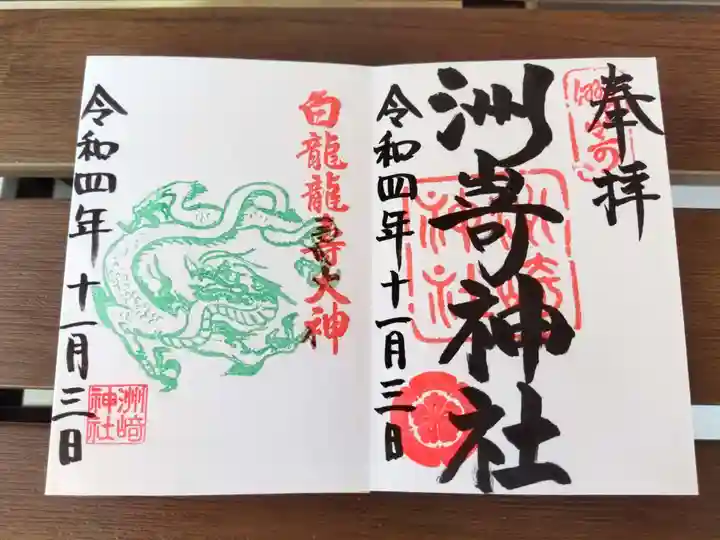 奉拝
洲嵜神社
洲崎神社
令和四年十一月三日
白龍龍壽大神
令和四年十一月三日
洲崎神社